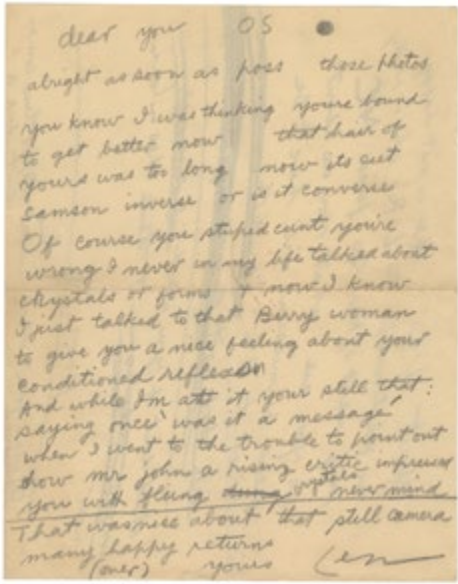 dear you OS
alright as soon as poss those photos
you know I was thinking youre bound
to get better now that hair of
yours was too long now its cut
Samson inverse or is it converse
Of course you stupid cunt you're
wrong I never in my life talked about
chrystals or forms & now I know
I just talked to that Berry woman
to give you a nice feeling about your
conditioned reflexes
And while I'm att it your still that:
saying once 'was it a message'
when I went to the trouble to point out
how mr john a rising critic impresses
you with flung never mind
That was nice about that still camera
many happy returns
(over) yours Len